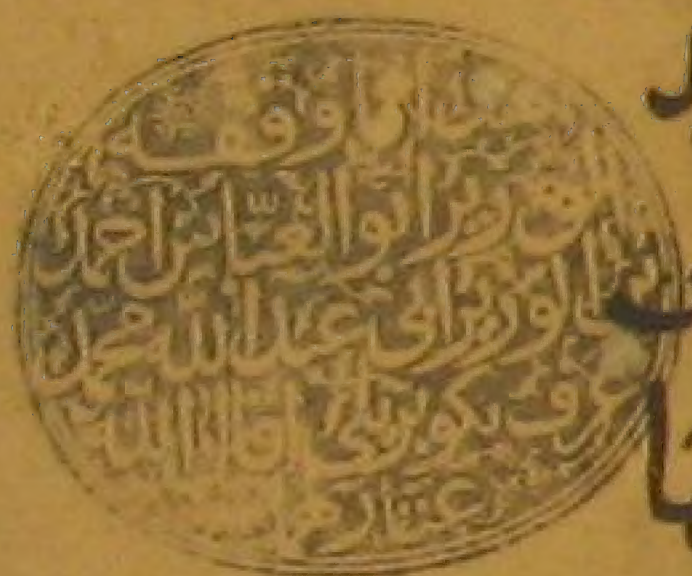 هذا ما وقفه
الوزير أبو العباس أحمد
بن الوزير أبي عبد الله محمد
عرف بكوبريلي أقال الله
عثارهما